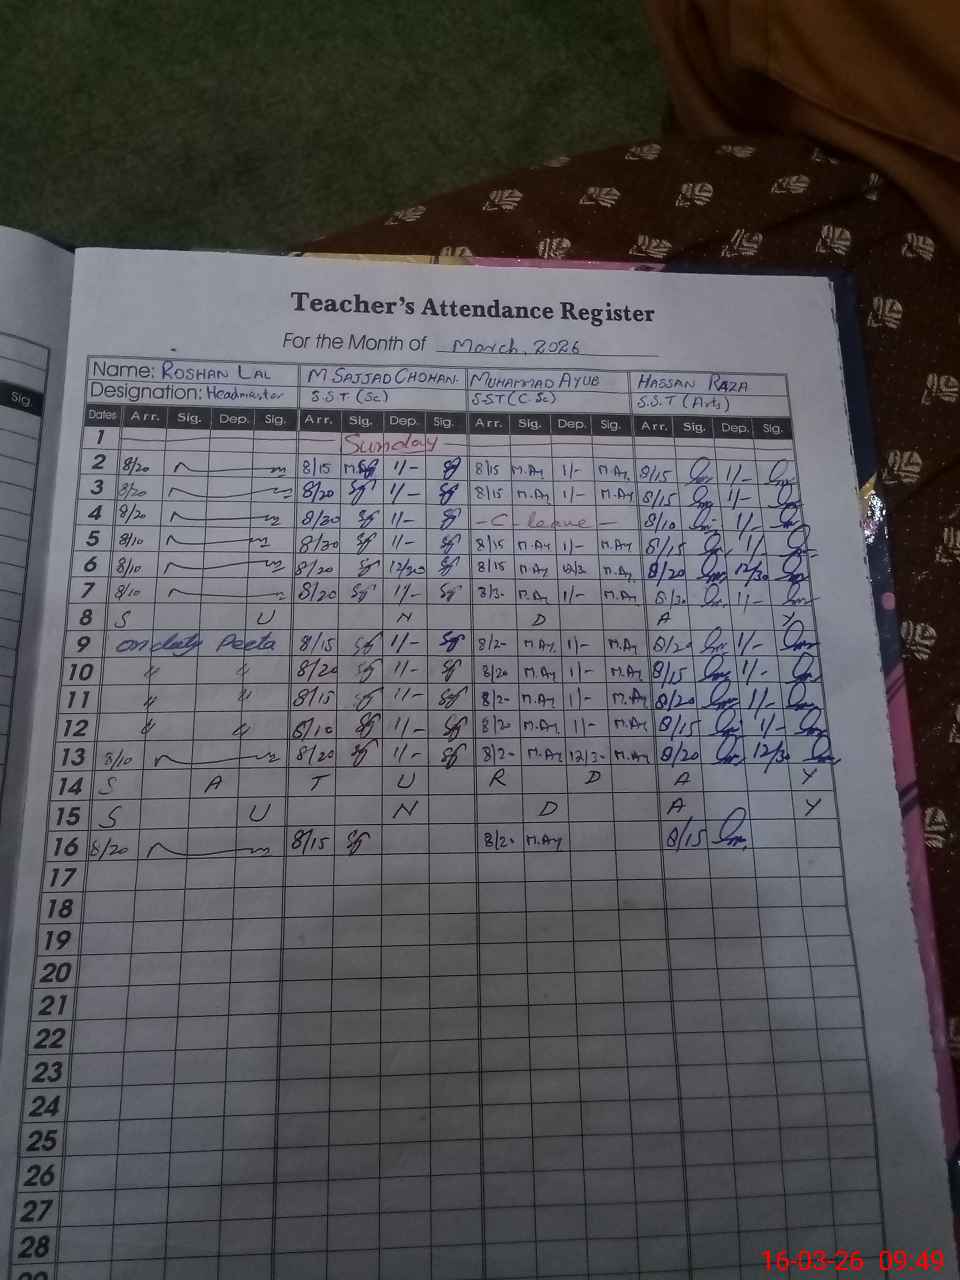 Teacher's Attendance Register
For the Month of March, 2026
Name: ROSHAN LAL M SAJJAD CHOHAN. MUHAMMAD AYUB HASSAN RAZA
Designation: Headmaster S.S.T (Sc) S.S.T (C.Sc) S.S.T (Arts)
Sig.
Dates Arr. Sig. Dep. Sig. Arr. Sig. Dep. Sig. Arr. Sig. Dep. Sig. Arr. Sig. Dep. Sig.
1 Sunday
2 8/20 8/15 1/- 8/15 M.Ay 1/- M.Ay 8/15 1/-
3 8/20 8/20 1/- 8/15 M.Ay 1/- M.Ay 8/15 1/-
4 8/20 8/20 1/- - C - leave - 8/10 1/-
5 8/10 8/20 1/- 8/15 M.Ay 1/- M.Ay 8/15 1/-
6 8/10 8/20 12/30 8/15 M.Ay M.Ay 8/20 12/30
7 8/10 8/20 1/- M.Ay 1/- M.Ay 1/-
8 S U N D A Y
9 on duty 8/15 1/- 8/2- M.Ay 1/- M.Ay 8/20 1/-
10 " " 8/20 1/- 8/20 M.Ay 1/- M.Ay 8/15 1/-
11 " " 8/15 1/- 8/2- M.Ay 1/- M.Ay 8/20 1/-
12 " " 8/10 1/- 8/20 M.Ay 1/- M.Ay 8/15 1/-
13 8/10 8/20 1/- 8/2- M.Ay 12/3- M.Ay 8/20 12/30
14 S A T U R D A Y
15 S U N D A Y
16 8/20 8/15 8/2- M.Ay 8/15
17
18
19
20
21
22
23
24
25
26
27
28
29
16-03-26 09:49